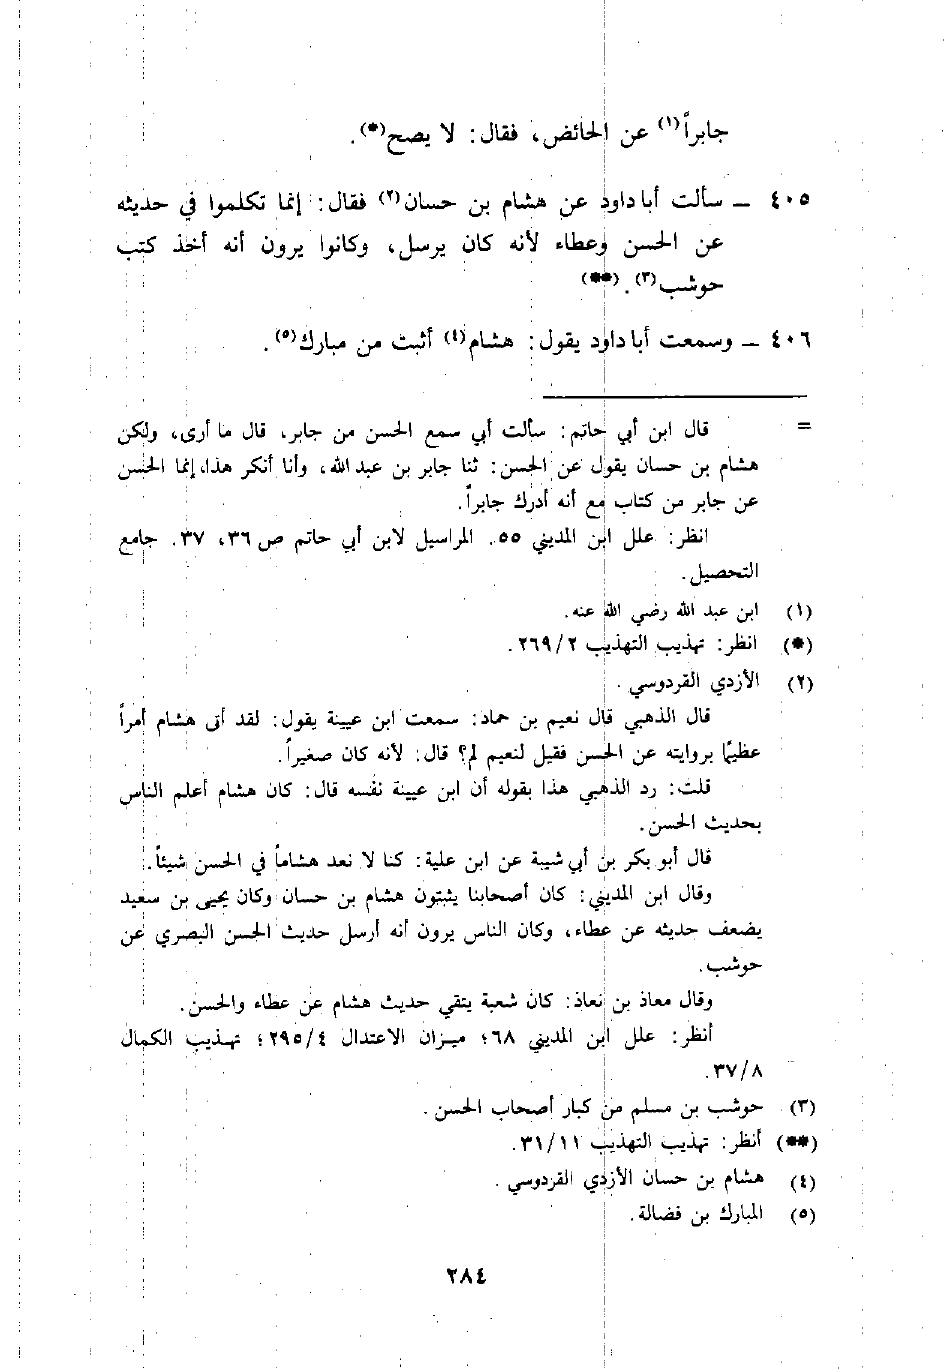 جابراً(١) عن الحائض، فقال: لا يصح(*).
٤٠٥ ــ سألت أبا داود عن هشام بن حسان(٢) فقال: إنما تكلموا في حديثه
عن الحسن وعطاء لأنه كان يرسل، وكانوا يرون أنه أخذ كتب
حوشب(٣). (**)
٤٠٦ ــ وسمعت أبا داود يقول: هشام(٤) أثبت من مبارك(٥).
= قال ابن أبي حاتم: سألت أبي سمع الحسن من جابر، قال ما أرى، ولكن
هشام بن حسان يقول عن الحسن: ثنا جابر بن عبد الله، وأنا أنكر هذا، إنما الحسن
عن جابر من كتاب مع أنه أدرك جابراً.
انظر: علل ابن المديني ٥٥. المراسيل لابن أبي حاتم ص ٣٦، ٣٧. جامع
التحصيل.
(١) ابن عبد الله رضي الله عنه.
(*) انظر: تهذيب التهذيب ٢/ ٢٦٩.
(٢) الأزدي القردوسي.
قال الذهبي قال نعيم بن حماد: سمعت ابن عيينة يقول: لقد أتى هشام أمراً
عظيمًا بروايته عن الحسن فقيل لنعيم لم؟ قال: لأنه كان صغيراً.
قلت: رد الذهبي هذا بقوله أن ابن عيينة نفسه قال: كان هشام أعلم الناس
بحديث الحسن.
قال أبو بكر بن أبي شيبة عن ابن علية: كنا لا نعد هشاماً في الحسن شيئاً.
وقال ابن المديني: كان أصحابنا يثبتون هشام بن حسان وكان يحيى بن سعيد
يضعف حديثه عن عطاء، وكان الناس يرون أنه أرسل حديث الحسن البصري عن
حوشب.
وقال معاذ بن نعاذ: كان شعبة يتقي حديث هشام عن عطاء والحسن.
أنظر: علل ابن المديني ٦٨؛ ميزان الاعتدال ٤/ ٢٩٥؛ تهذيب الكمال
٨/ ٣٧.
(٣) حوشب بن مسلم من كبار أصحاب الحسن.
(**) أنظر: تهذيب التهذيب ١١/ ٣١.
(٤) هشام بن حسان الأزدي القردوسي.
(٥) المبارك بن فضالة.
٢٨٤